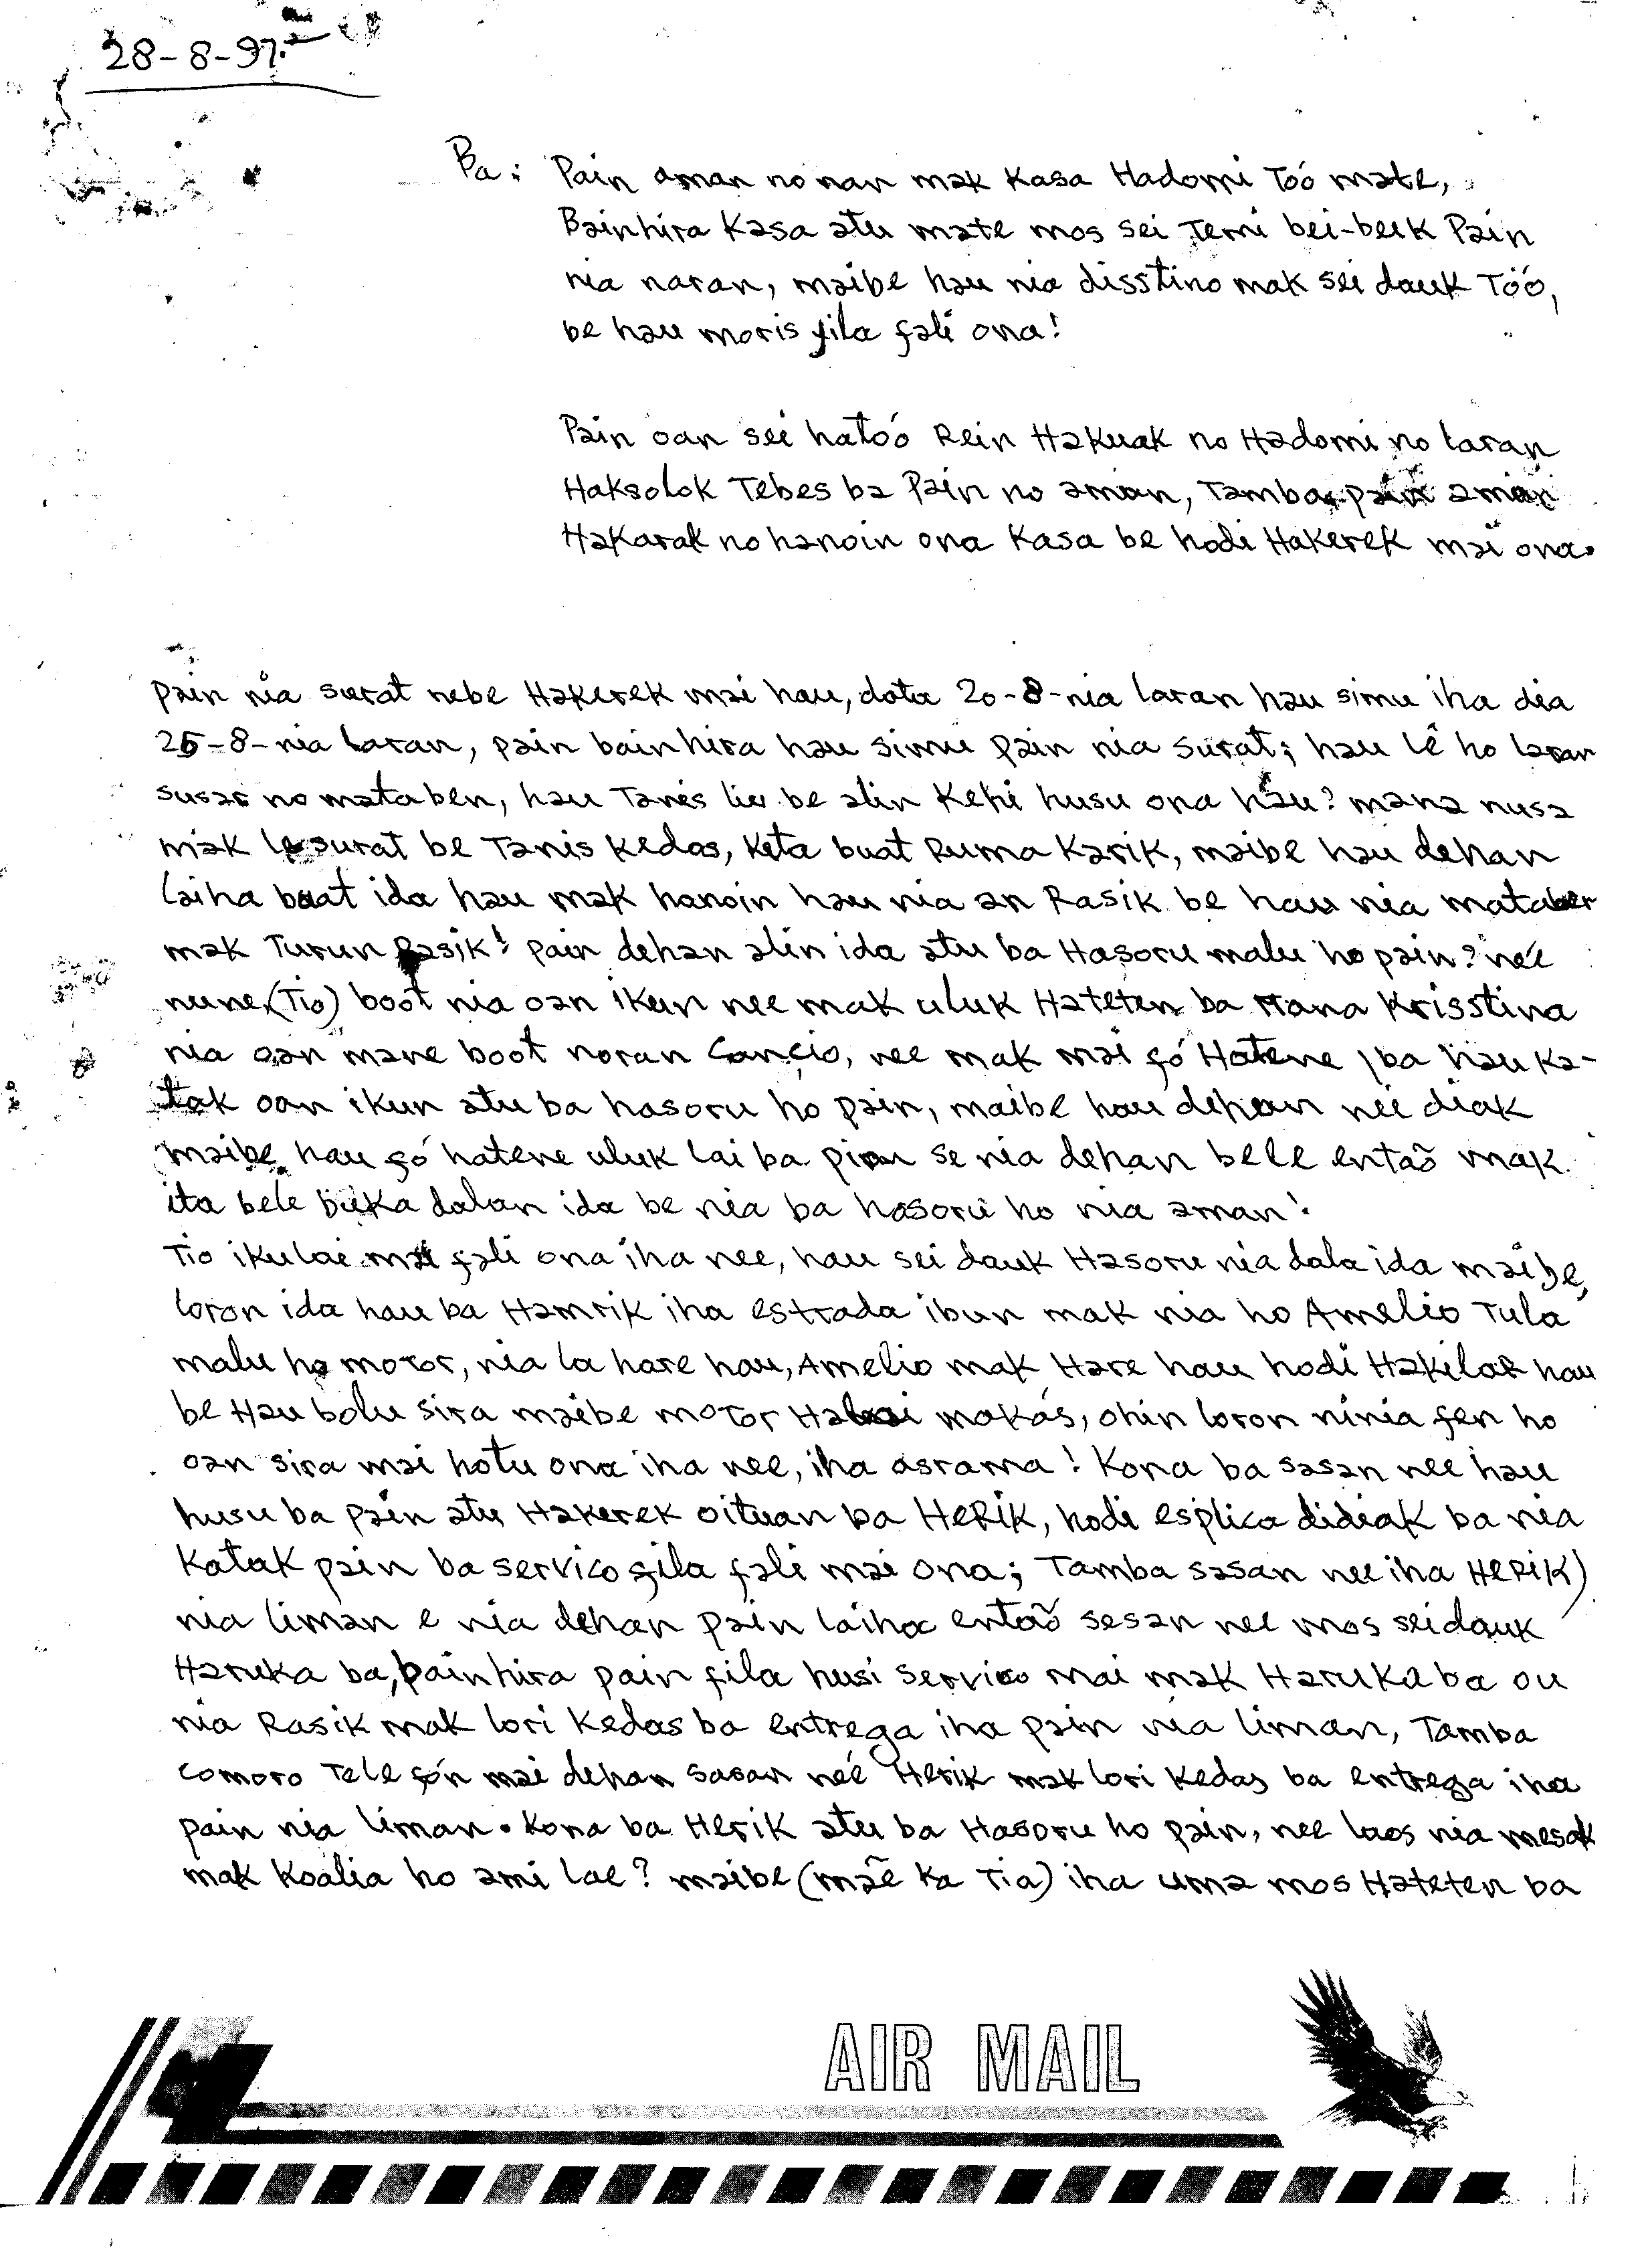 28-8-97.
Ba: Pain aman no nan mak Kasa Hadomi Tóó mate,
Bainhira Kasa atu mate mos sei Temi bei-beik Pain
nia naran, maibe hau nia disstino mak sei dauk Tóó,
be hau moris fila fali ona!
Pain oan sei hatóó Rein Hakuak no Hadomi no laran
Haksolok Tebes ba Pain no aman, Tamba pain aman
Hakarak no hanoin ona Kasa be hodi Hakerek mai ona.
Pain nia surat nebe Hakerek mai hau, data 20-8-nia laran hau simu iha dia
25-8-nia laran, pain bainhira hau simu pain nia surat; hau lê ho laran
susar no mataben, hau Tanis liu be alin Kehi husu ona hau? mana nusa
mak le surat be Tanis Kedas, Keta buat Ruma Karik, maibe hau dehan
laiha buat ida hau mak hanoin hau nia an Rasik be hau nia mataben
mak Turun Rasik! pain dehan alin ida atu ba Hasoru malu ho pain? neé
nune, (Tio) boot nia oan ikun nee mak uluk Hateten ba Mana Krisstina
nia oan mane boot naran Cancio, nee mak mai fó Hatene ba hau ka-
tak oan ikun atu ba hasoru ho pain, maibe hau dehan nee diak
maibe hau fó hatene uluk lai ba pian se nia dehan bele entaõ mak
ita bele buka dalan ida be nia ba hasoru ho nia aman!
Tio ikulai mai fali ona iha nee, hau sei dauk Hasoru nia dala ida maibe,
loron ida hau ba Hamrik iha estrada ibun mak nia ho Amelio Tula
malu ho motor, nia la hare hau, Amelio mak Hare hau hodi Hakilar hau
be Hau bolu sira maibe motor Halai makás, ohin loron ninia fen ho
oan sira mai hotu ona iha nee, iha asrama! Kona ba sasan nee hau
husu ba pain atu Hakerek oituan ba HERIK, hodi esplica didiak ba nia
Katak pain ba servico fila fali mai ona; Tamba sasan nee iha HERIK)
nia liman e nia dehan pain laiha entaõ sesan nee mos seidauk
Haruka ba, bainhira pain fila husi servico mai mak Haruka ba ou
nia Rasik mak lori Kedas ba entrega iha pain nia liman, Tamba
comoro Telefón mai dehan sasan neé Herik mak lori Kedas ba entrega iha
pain nia liman. Kona ba Herik atu ba Hasoru ho pain, nee laos nia mesak
mak Koalia ho ami lae? maibe (mãe Ka Tia) iha uma mos Hateten ba
AIR MAIL